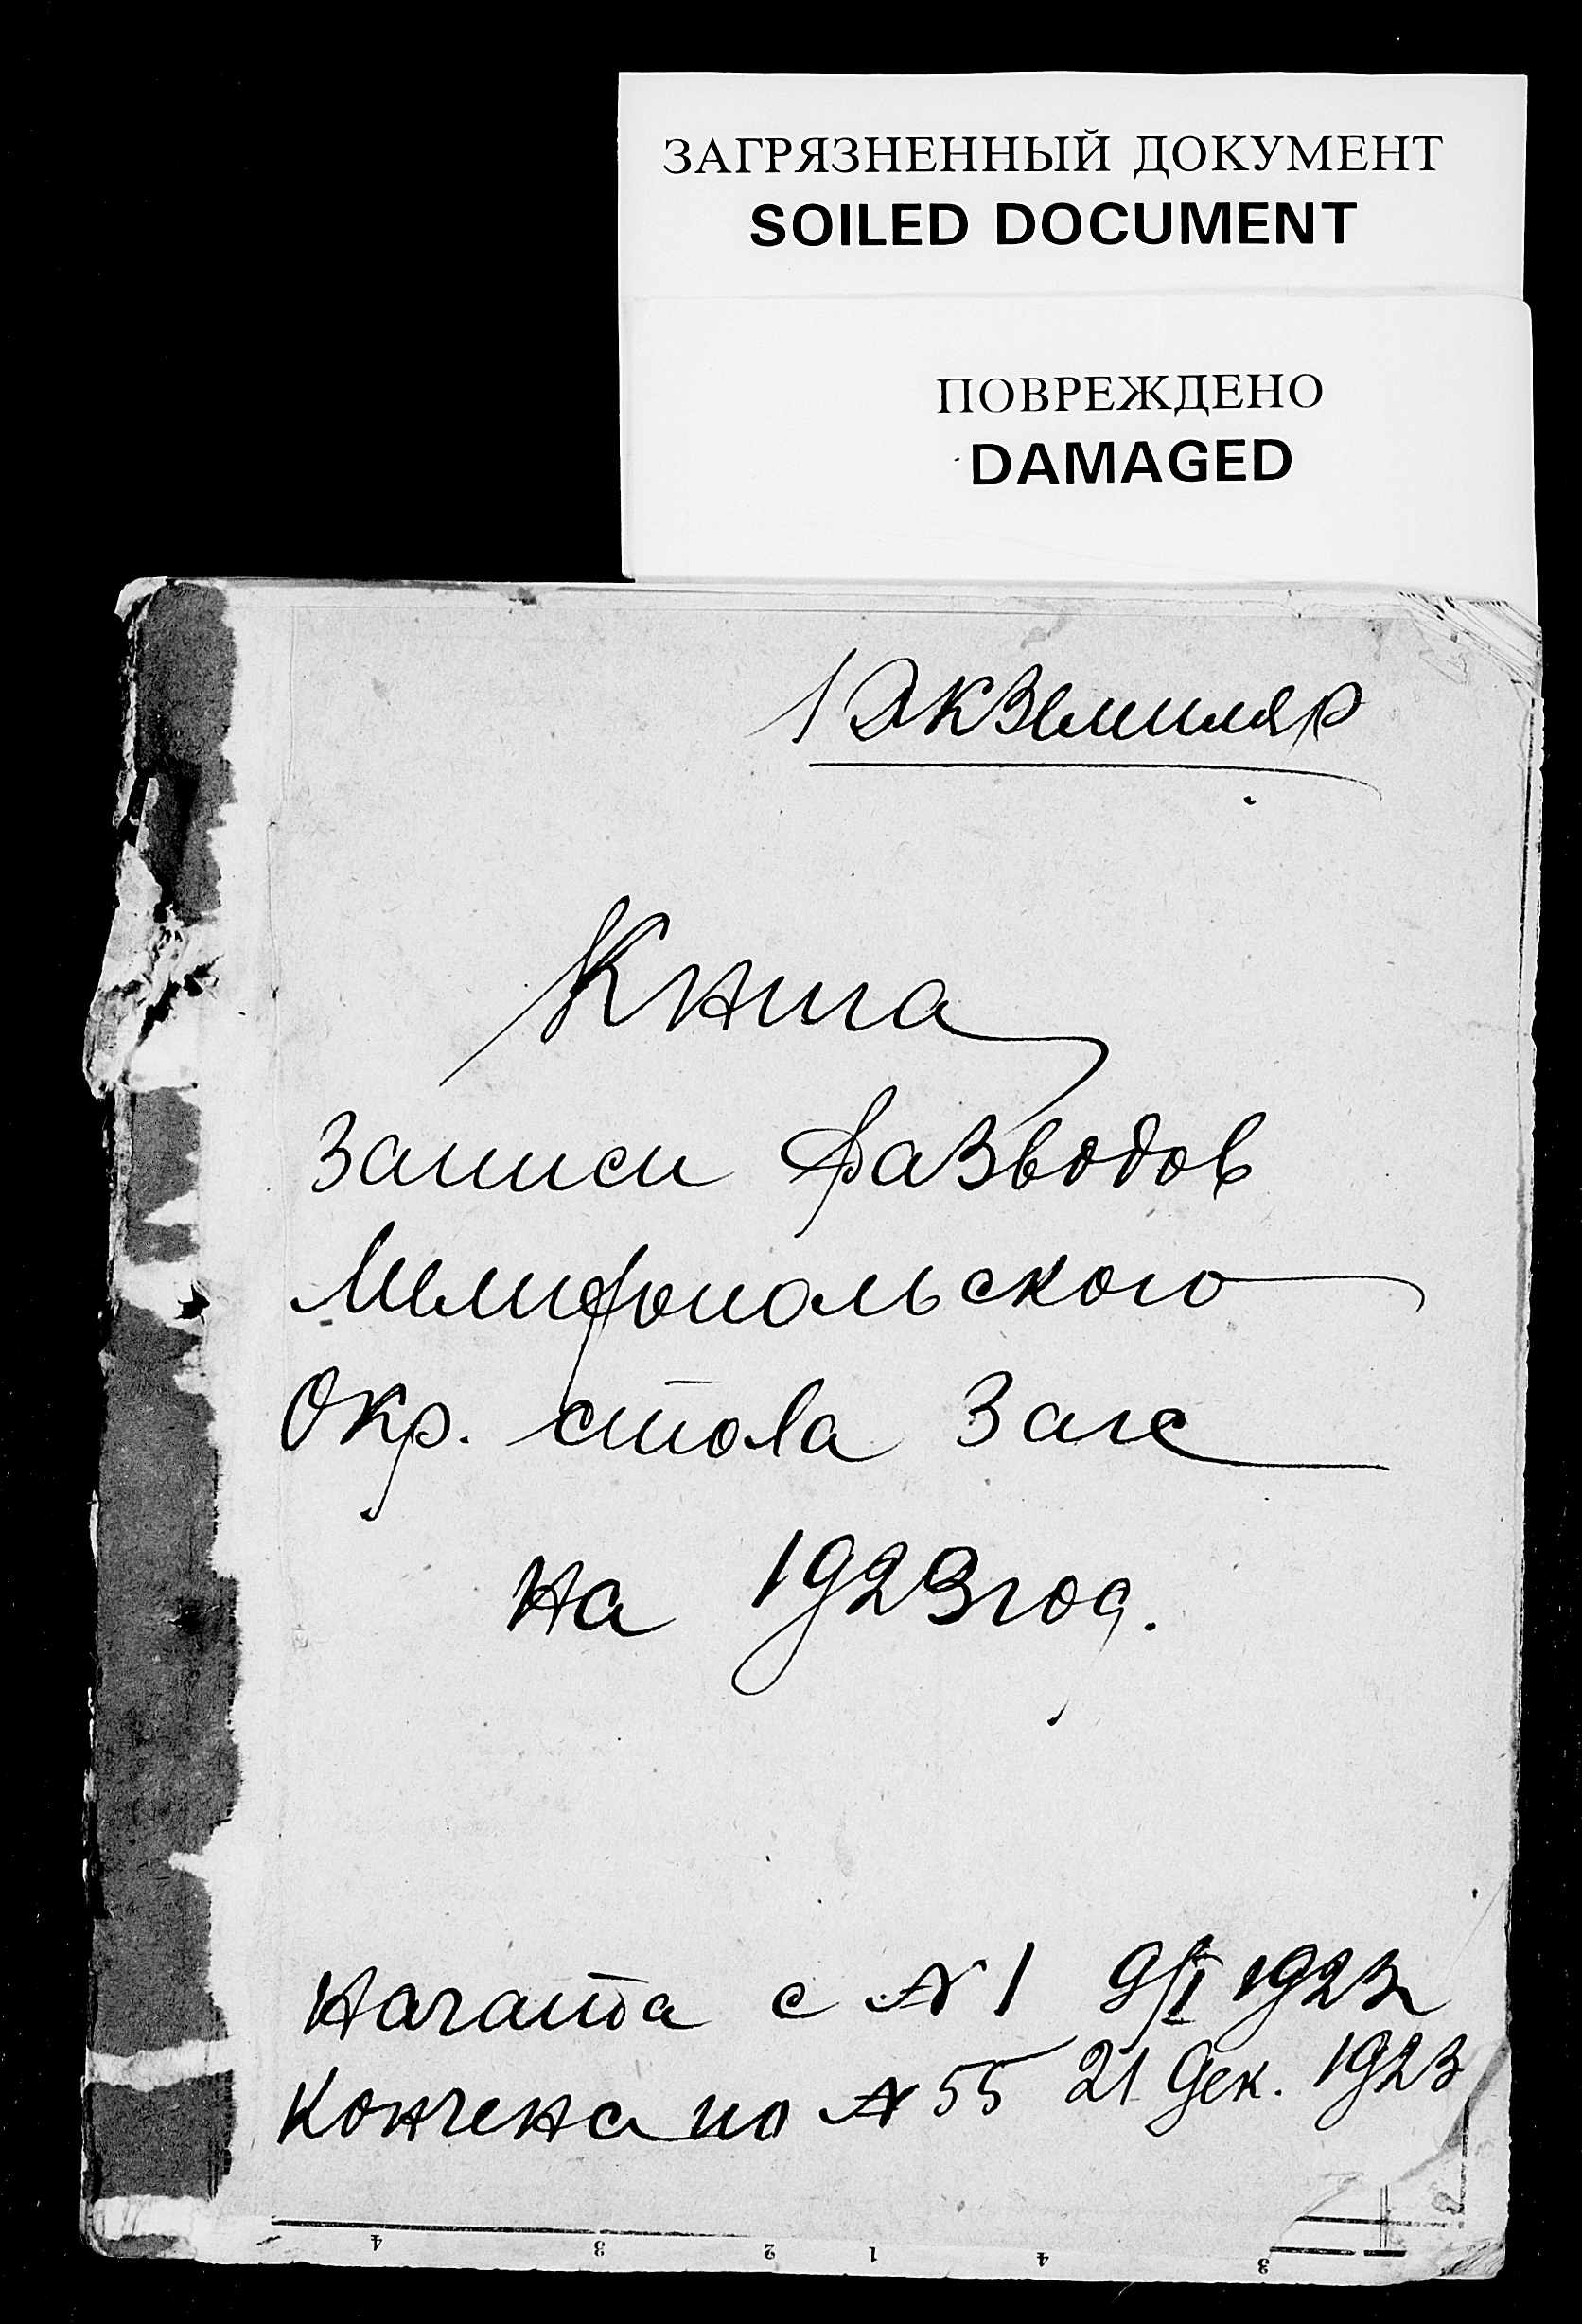 ЗАГРЯЗНЕННЫЙ ДОКУМЕНТ
SOILED DOCUMENT
ПОВРЕЖДЕНО
DAMAGED
1 Экземпляр
Книга
записи разводов
Мелитопольского
Окр. стола Загс
на 1923 год.
Начата с № 1 9/I 1923
Кончена по № 55 21 Дек. 1923
4 3 2 1 4 3